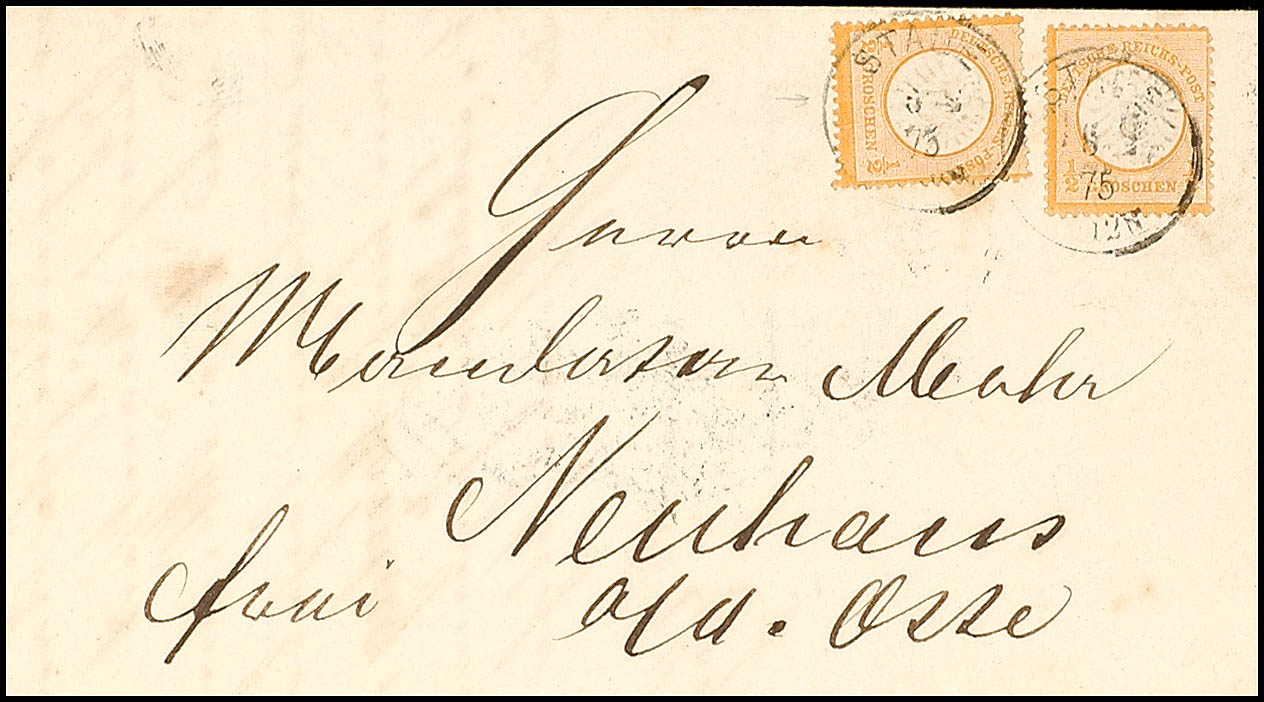 DEUTSCHE REICHS-POST
1/2 GROSCHEN 1/2
DEUTSCHE REICHS-POST
1/2 GROSCHEN
75
6
75
12N
Herrn
Mandatar Mohr
Neuhaus
a/d. Oste
frei